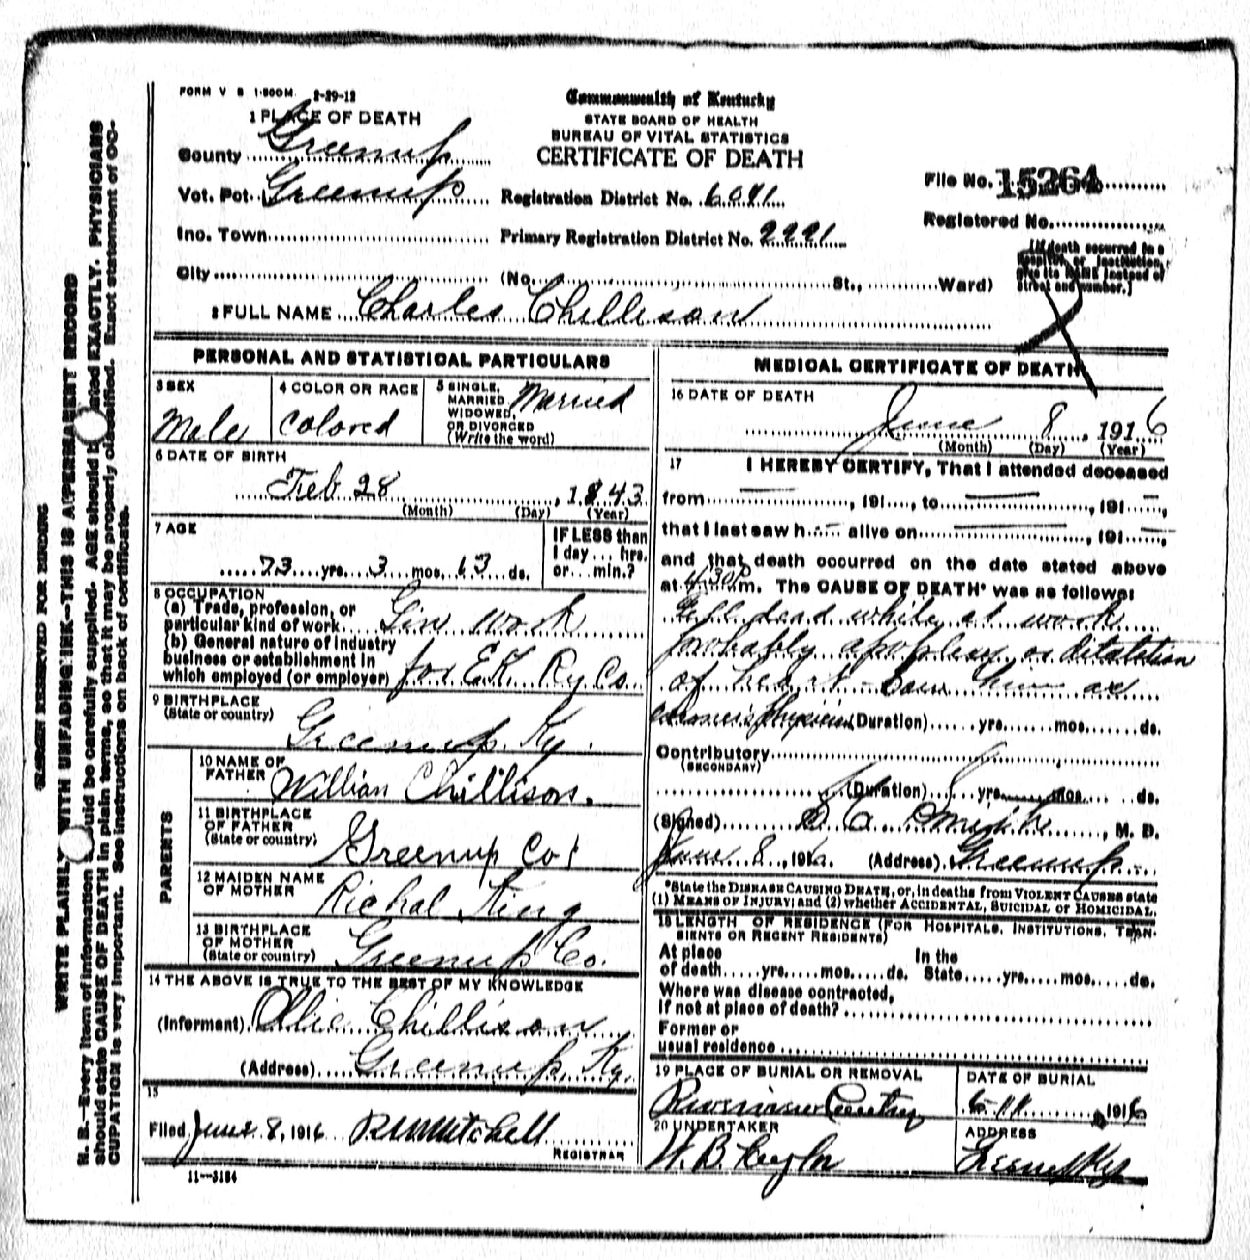 FORM V S 1-500M. 2-29-12
Commonwealth of Kentucky
STATE BOARD OF HEALTH
BUREAU OF VITAL STATISTICS
CERTIFICATE OF DEATH
1 PLACE OF DEATH
County Greenup
Vot. Pct. Greenup
Registration District No. 6041
File No. 15264
Registered No.
Inc. Town
Primary Registration District No. 2221
City (No. St., Ward)
[If death occurred in a
hospital or institution,
give its NAME instead of
street and number.]
2 FULL NAME Charles Chellison
PERSONAL AND STATISTICAL PARTICULARS
3 SEX
Male
4 COLOR OR RACE
Colored
5 SINGLE,
MARRIED,
WIDOWED,
OR DIVORCED
(Write the word)
Married
6 DATE OF BIRTH
Feb 28, 1843
(Month) (Day) (Year)
7 AGE
73 yrs. 3 mos. 13 ds.
IF LESS than
1 day... hrs.
or... min.?
8 OCCUPATION
(a) Trade, profession, or
particular kind of work Gen work
(b) General nature of industry
business or establishment in
which employed (or employer) for E.K. Ry Co
9 BIRTHPLACE
(State or country)
Greenup Ky.
PARENTS
10 NAME OF
FATHER Willian Chillison.
11 BIRTHPLACE
OF FATHER
(State or country) Greenup Co
12 MAIDEN NAME
OF MOTHER Richal King
13 BIRTHPLACE
OF MOTHER
(State or country) Greenup Co.
14 THE ABOVE IS TRUE TO THE BEST OF MY KNOWLEDGE
(Informant) Ollie Chillison
(Address) Greenup, Ky.
15
Filed June 8, 1916 R M Mitchell
REGISTRAR
11-3184
MEDICAL CERTIFICATE OF DEATH
16 DATE OF DEATH
June 8, 1916
(Month) (Day) (Year)
17 I HEREBY CERTIFY, That I attended deceased
from , 191 , to , 191 ,
that I last saw h alive on , 191 ,
and that death occurred on the date stated above
at 4:30 P m. The CAUSE OF DEATH* was as follows:
Fell dead while at work
probably apoplexy or dilatation
of heart - Saw him as
Physician (Duration) yrs. mos. ds.
Contributory
(SECONDARY)
(Duration) yrs. mos. ds.
(Signed) , M. D.
June 8, 1916 (Address) Greenup
*State the DISEASE CAUSING DEATH, or, in deaths from VIOLENT CAUSES state
(1) MEANS OF INJURY; and (2) whether ACCIDENTAL, SUICIDAL or HOMICIDAL.
18 LENGTH OF RESIDENCE (FOR HOSPITALS, INSTITUTIONS, TRAN-
SIENTS OR RECENT RESIDENTS)
At place
of death yrs. mos. ds.
In the
State yrs. mos. ds.
Where was disease contracted,
If not at place of death?
Former or
usual residence
19 PLACE OF BURIAL OR REMOVAL
Riverview
DATE OF BURIAL
6-11 1916
20 UNDERTAKER
W. B. Taylor
ADDRESS
Greenup Ky
MARGIN RESERVED FOR BINDING
WRITE PLAINLY WITH UNFADING INK—THIS IS A PERMANENT RECORD
N. B.—Every item of information should be carefully supplied. AGE should be stated EXACTLY. PHYSICIANS
should state CAUSE OF DEATH in plain terms, so that it may be properly classified. Exact statement of OC-
CUPATION is very important. See instructions on back of certificate.